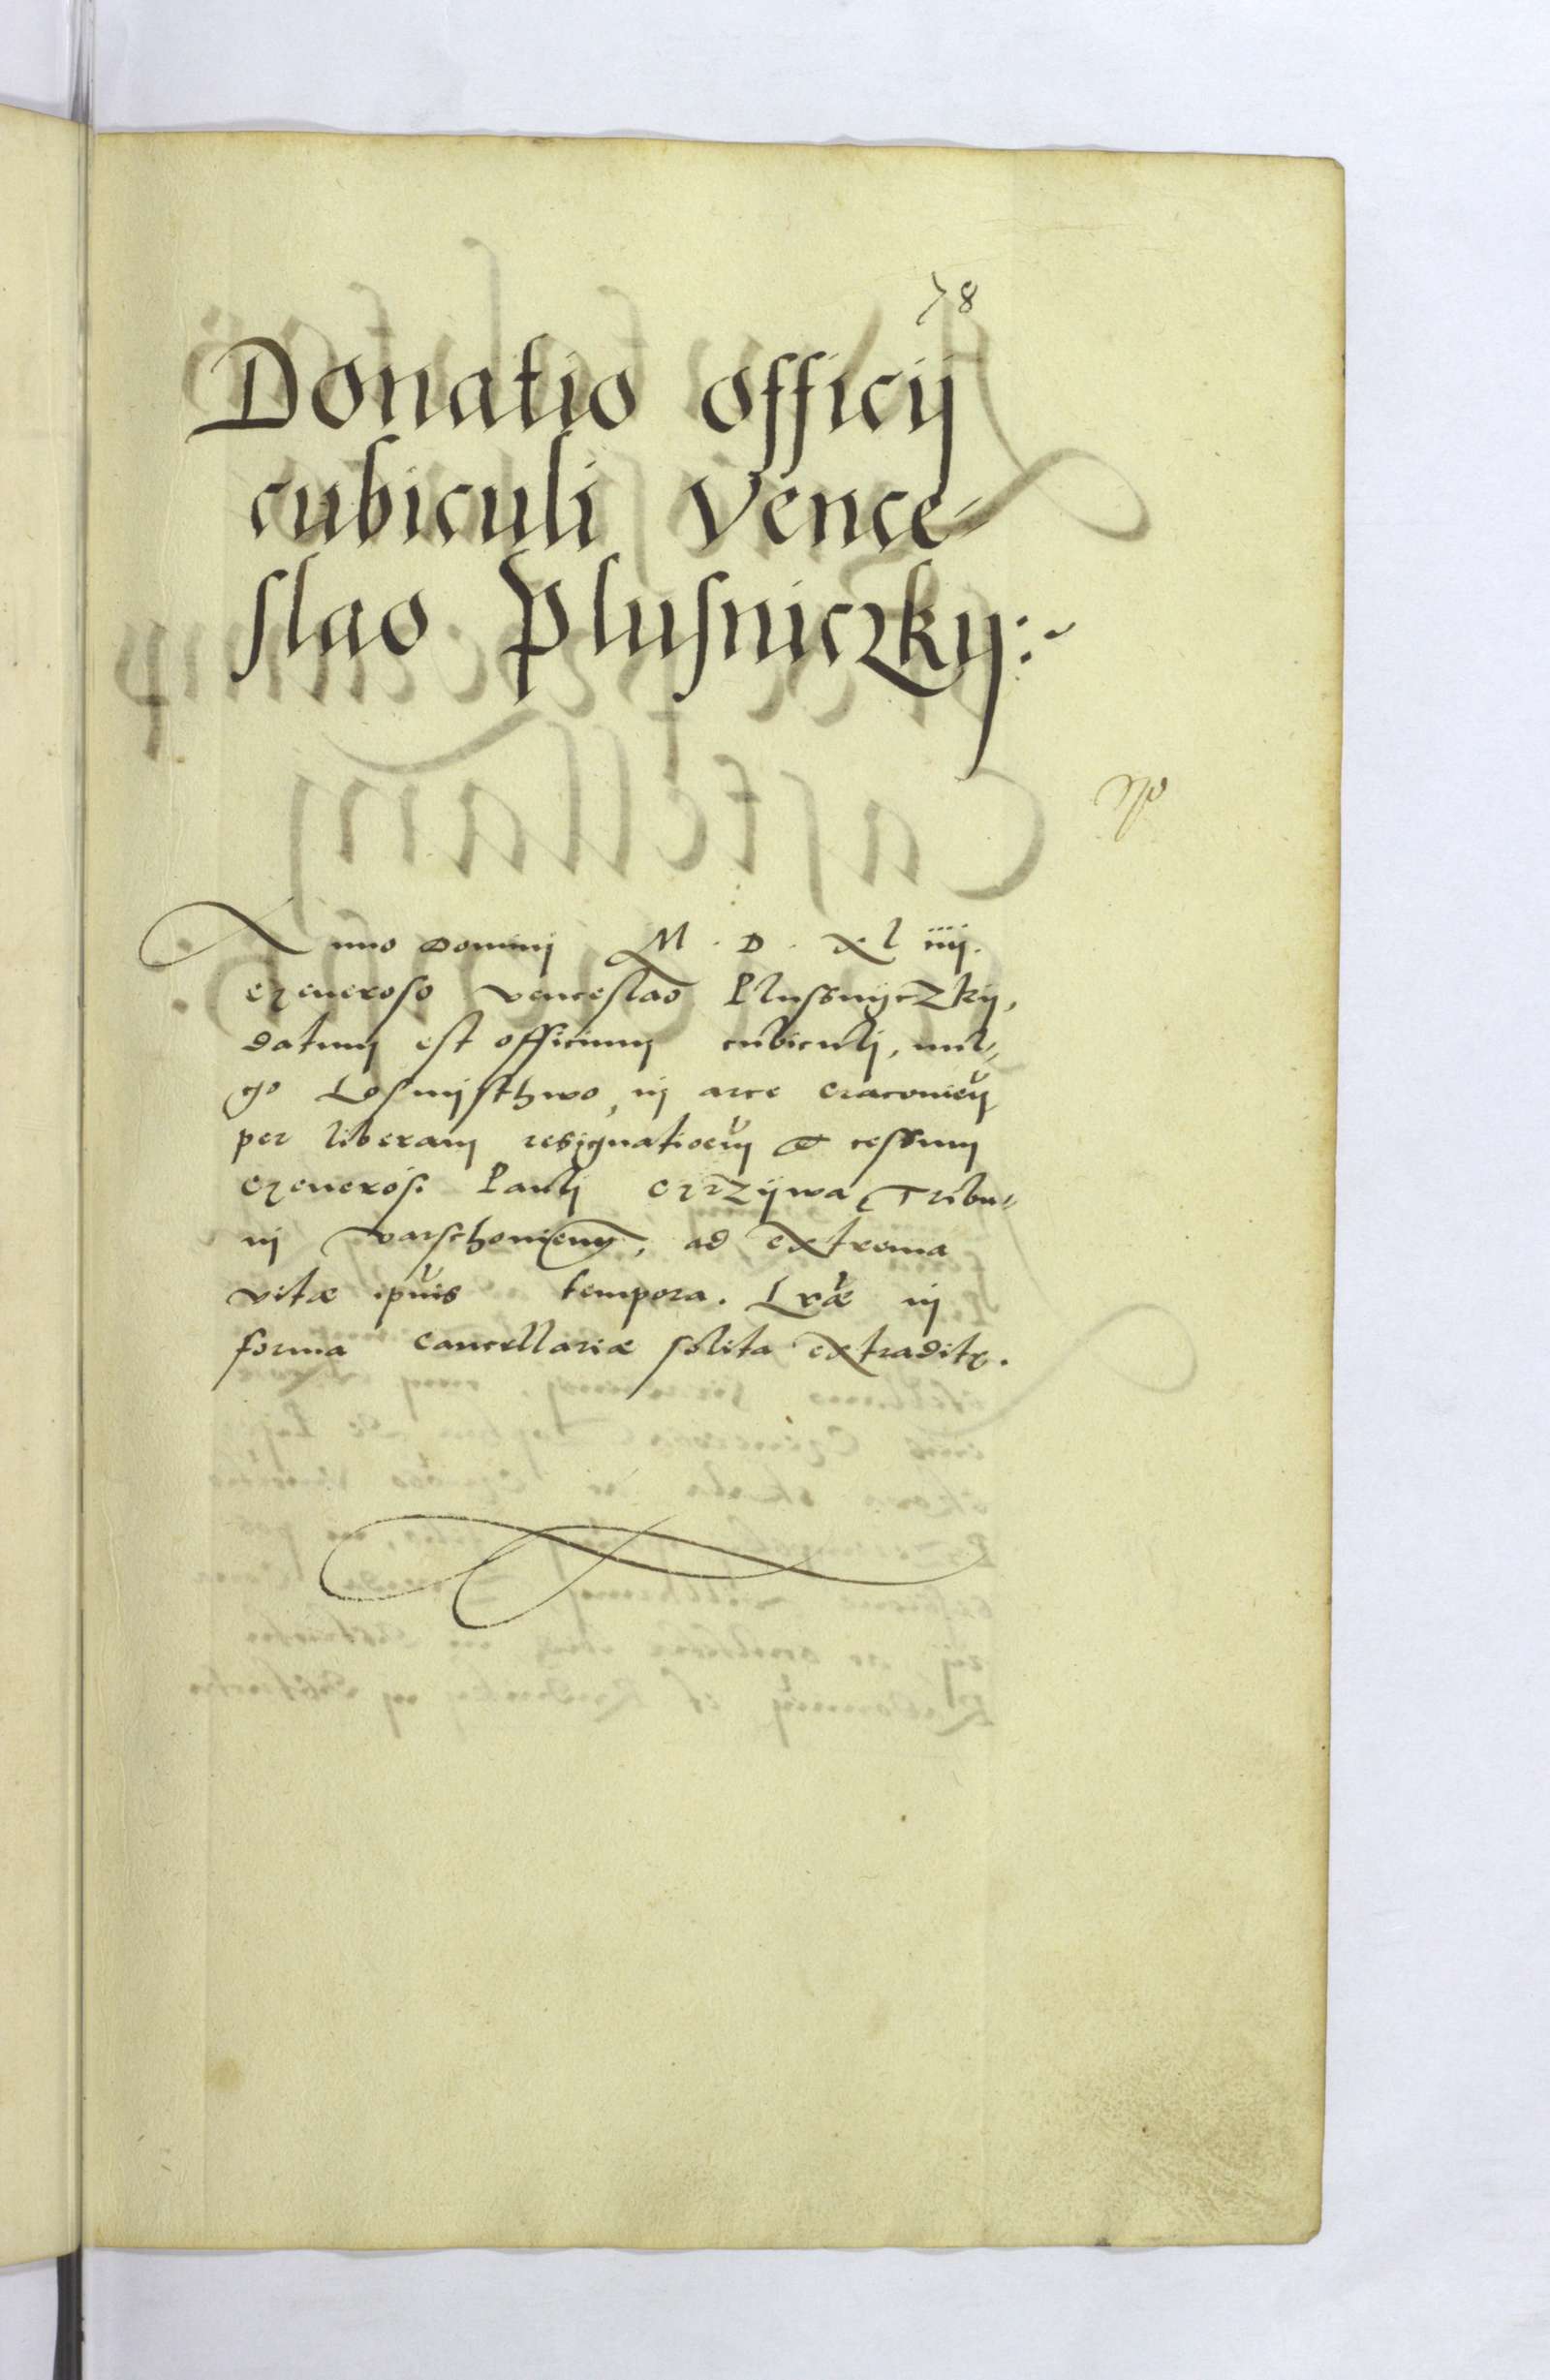 78
Donatio officij
cubiculi Vence-
slao Plusniczky:~
Anno Domini M. D. XL iiij.
Generoso Venceslao Plussnyczky,
datum est officium cubiculj, uul-
go Losnijsthwo, in arce Cracovien
per liberam resignatioem et cessum
Generosi Paulj Grzywa Tribu-
nj Varschoviens, ad extrema
vitæ ipius tempora. Lræ in
forma Cancellariæ solita extraditę.